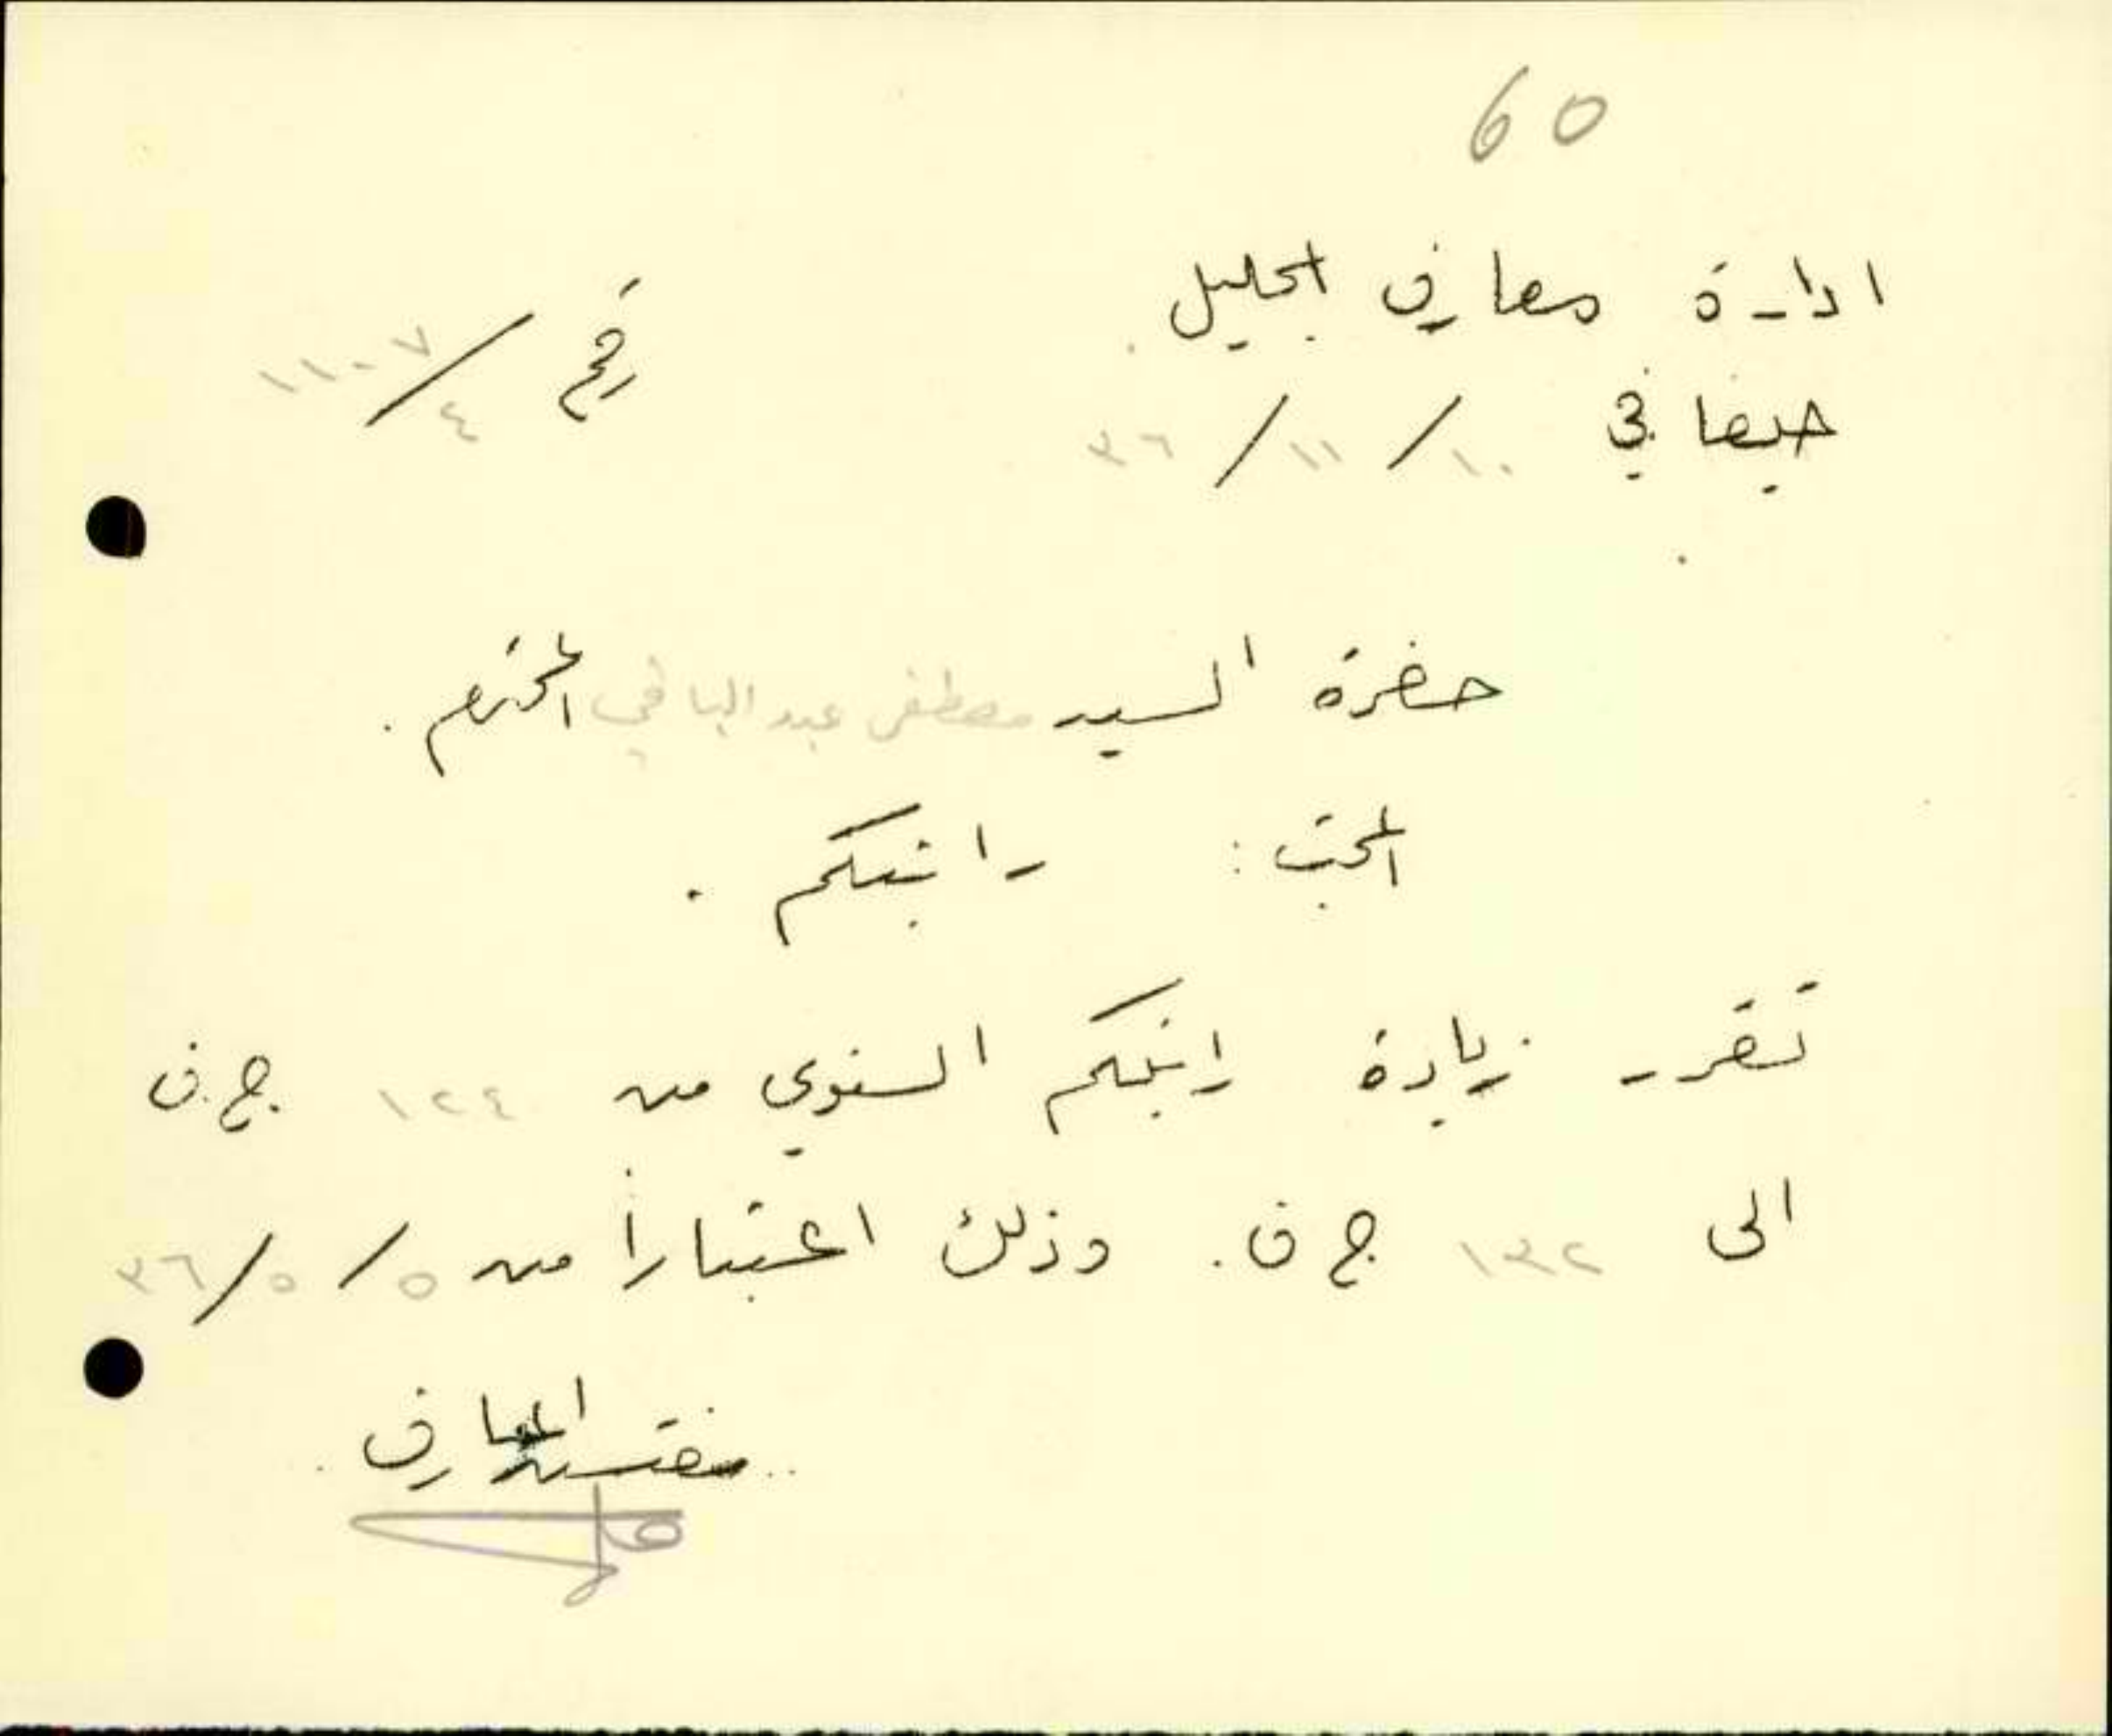 60
ادارة معارف الجليل.
رقم ٤/١١٠٧
حيفا في ١٠/١١/٣٦
حضرة السيد مصطفى عبد الباقي المحترم.
المبحث: راتبكم.
تقرر زيادة راتبكم السنوي من ١٢٤ ج.ف
الى ١٣٢ ج ف. وذلك اعتباراً من ٥/٥/٣٦
مفتش المعارف